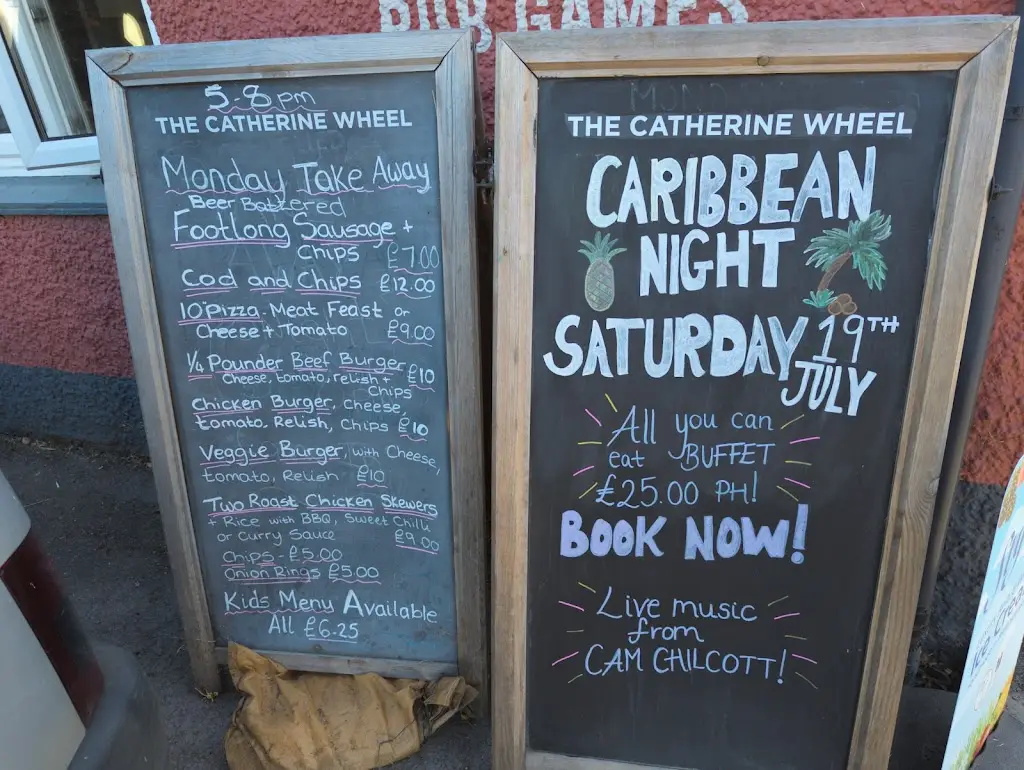 PUB GAMES
5-8pm
THE CATHERINE WHEEL
Monday Take Away
Beer Battered
Footlong Sausage +
Chips £7.00
Cod and Chips £12.00
10" Pizza. Meat Feast or
Cheese + Tomato £9.00
1/4 Pounder Beef Burger £10
Cheese, tomato, relish +
Chips
Chicken Burger, Cheese,
tomato, Relish, Chips £10
Veggie Burger, with Cheese,
tomato, Relish £10
Two Roast Chicken Skewers
+ Rice with BBQ, Sweet Chilli
or Curry Sauce £9.00
Chips - £5.00
Onion Rings £5.00
Kids Menu Available
All £6.25
THE CATHERINE WHEEL
CARIBBEAN
NIGHT
SATURDAY 19TH
JULY
All you can
eat BUFFET
£25.00 PH!
BOOK NOW!
Live music
from
CAM CHILCOTT!